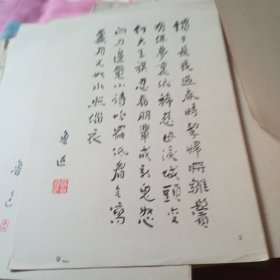 慣于長夜過春時挈婦將雛鬢
有絲夢裏依稀慈母淚城頭變
幻大王旗忍看朋輩成新鬼怒
向刀邊覓小詩吟罷低眉無寫
處月光如水照緇衣
魯迅
魯迅
3